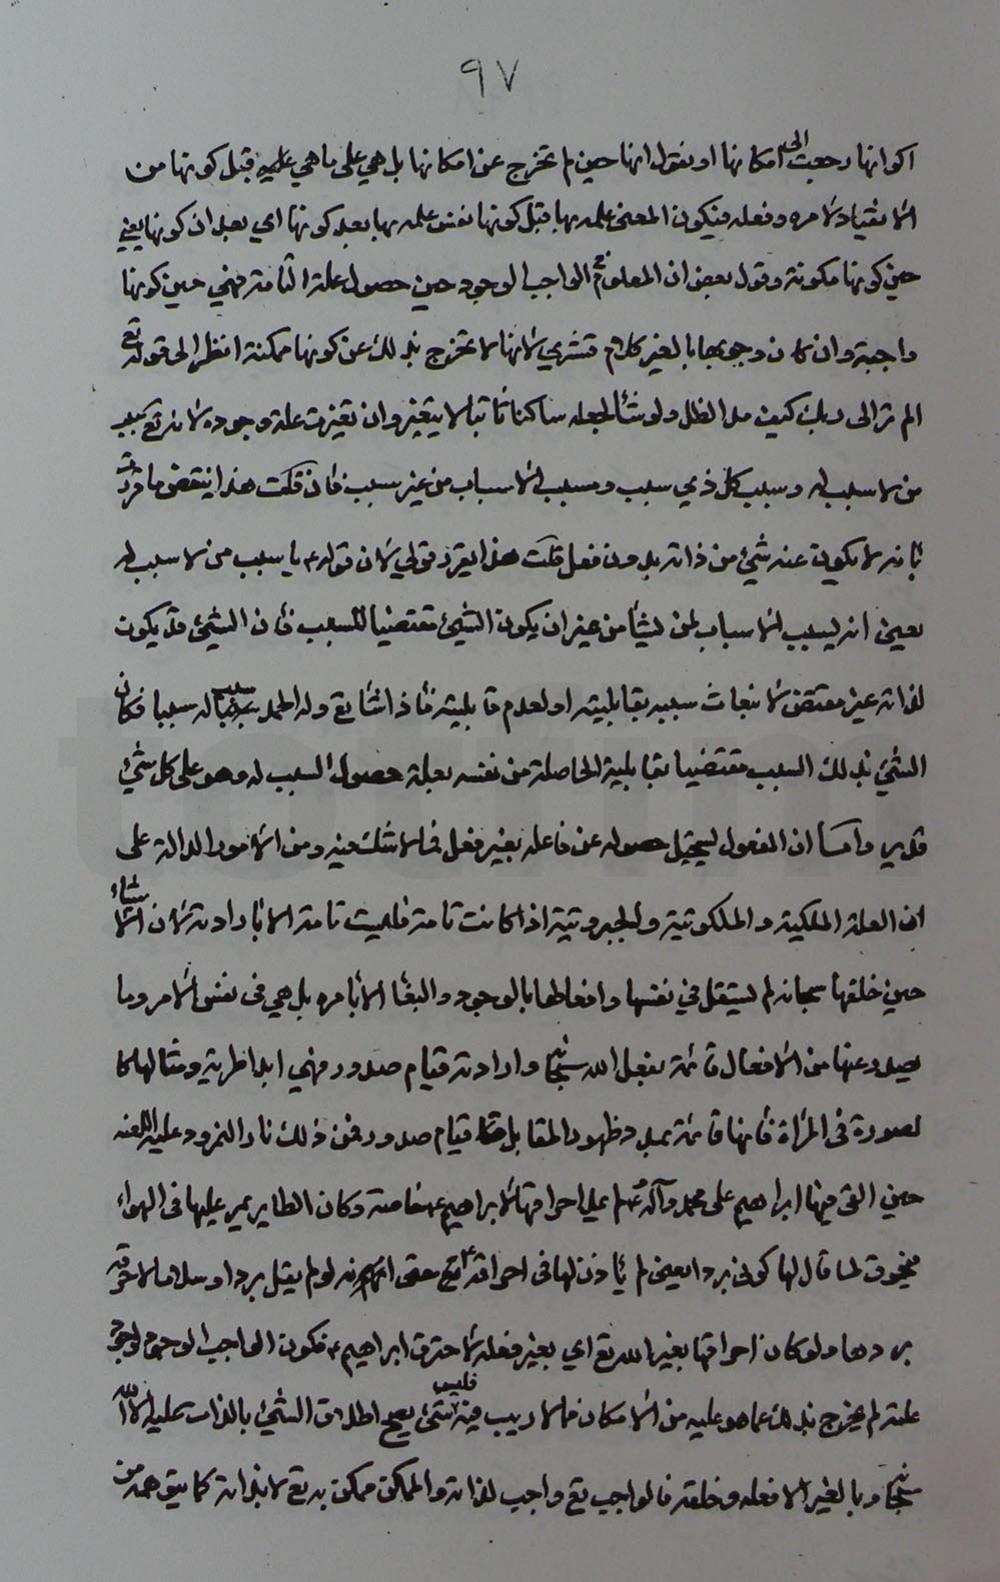 ٩٧
اكوانها رجعت الى امكانها او نقول انها حين لم تخرج عن امكانها بل هي على ما هي عليه قبل كونها من
الانقياد لامره وفعله فيكون المعنى علمه بها قبل كونها نفس علمه بها بعد كونها اي بعد ان كونها يعني
حين كونها مكونة وقول بعض ان المعلوم الواجب الوجود حين حصول علته التامة فهي حين كونها
واجبة وان كان وجوبها بالغير كلام قشري لانها لا تخرج بذلك عن كونها ممكنة انظر الى قوله تع
الم تر الى ربك كيف مد الظل ولو شاء لجعله ساكنا ثابتا لا يتغير وان تغيرت علة وجوده لانه تع سبب
من لا سبب له وسبب كل ذي سبب ومسبب الاسباب من غير سبب فان قلت هذا ينقض ما قررت
بانه لا يكون عنه شيء من ذاته بدون فعل قلت هذا يقرر قولي لان قوله ع يا سبب من لا سبب له
يعني انه يسبب الاسباب لمن يشاء من غير ان يكون الشيء مقتضيا للسبب فان الشيء قد يكون
لذاته غير مقتض لانبعاث سببه بقابليته او لعدم قابليته فاذا شاء تع وله الحمد سبب له سببا فكان
الشيء بذلك السبب مقتضيا بقابليته الحاصلة من نفسه بعلة حصول السبب له وهو على كل شيء
قدير واما ان المفعول يستحيل حصوله عن فاعله بغير فعل فما لا شك فيه ومن الامور الدالة على
ان العلة الملكية والملكوتية والجبروتية اذا كانت تامة فليست تامة الا بارادته لان الاشياء
حين خلقها سبحانه لم يستقل في نفسها وافعالها بالوجود والبقاء الا بامره بل هي في نفس الامر وما
يصدر عنها من الافعال قائمة بفعل الله سبحانه وارادته قيام صدور فهي ابدا طرية ومثالها كا
لصورة في المرآة فانها قائمة بمدد ظهور المقابل قيام صدور فمن ذلك نار النمرود عليه اللعنه
حين القى فيها ابراهيم على محمد وآله وعليه السلام احراقها لابراهيم ع خاصة وكان الطاير يمر عليها في الهواء
فيحرق لما قال لها كوني بردا يعني لم ياذن لها في احراقه ع تع حتى انه لو لم يقل بردا وسلاما لاحرقه
بردها ولو كان احراقها بغير الله تع اي بغير فعله لاحترق ابراهيم ع فكون الواجب الوجود لوجود
علته لم يخرج بذلك عما هو عليه من الامكان مما لا ريب فيه فليس شيء يصح اطلاق الشيء بالذات عليه الا الله
سبحانه وبالغير الا فعله وخلقه فالواجب تع واجب لذاته والممكن ممكن به تع لا بذاته كما يتوهمه من